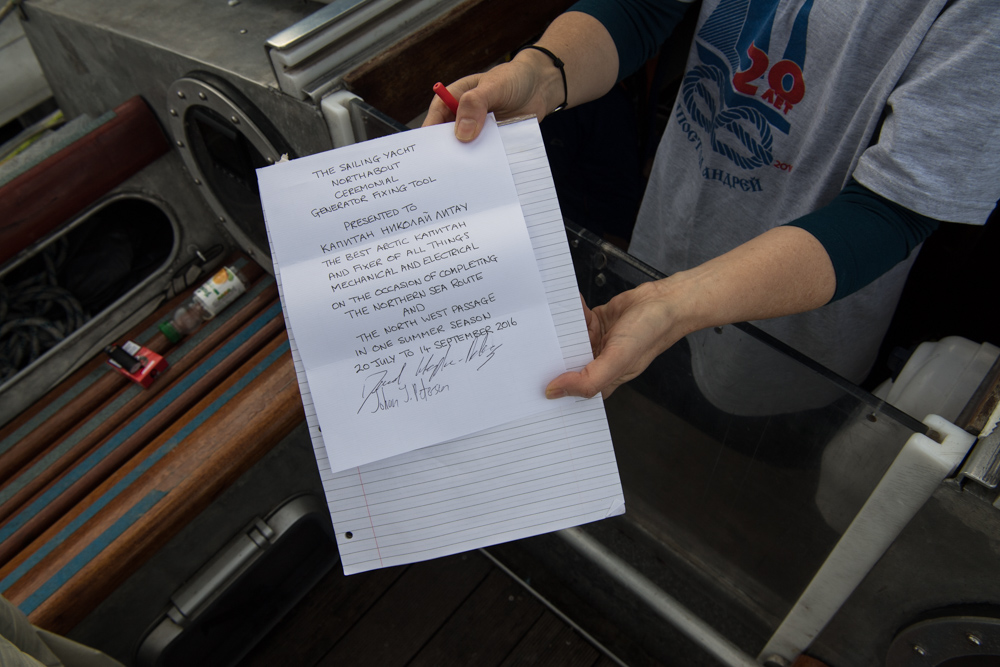 THE SAILING YACHT
NORTHABOUT
CEREMONIAL
GENERATOR FIXING TOOL
PRESENTED TO
КАПИТАН НИКОЛАЙ ЛИТАУ
THE BEST ARCTIC КАПИТАН
AND FIXER OF ALL THINGS
MECHANICAL AND ELECTRICAL
ON THE OCCASION OF COMPLETING
THE NORTHERN SEA ROUTE
AND
THE NORTH WEST PASSAGE
IN ONE SUMMER SEASON
20 JULY TO 14 SEPTEMBER 2016
20
ЛЕТ
АНДРЕЙ